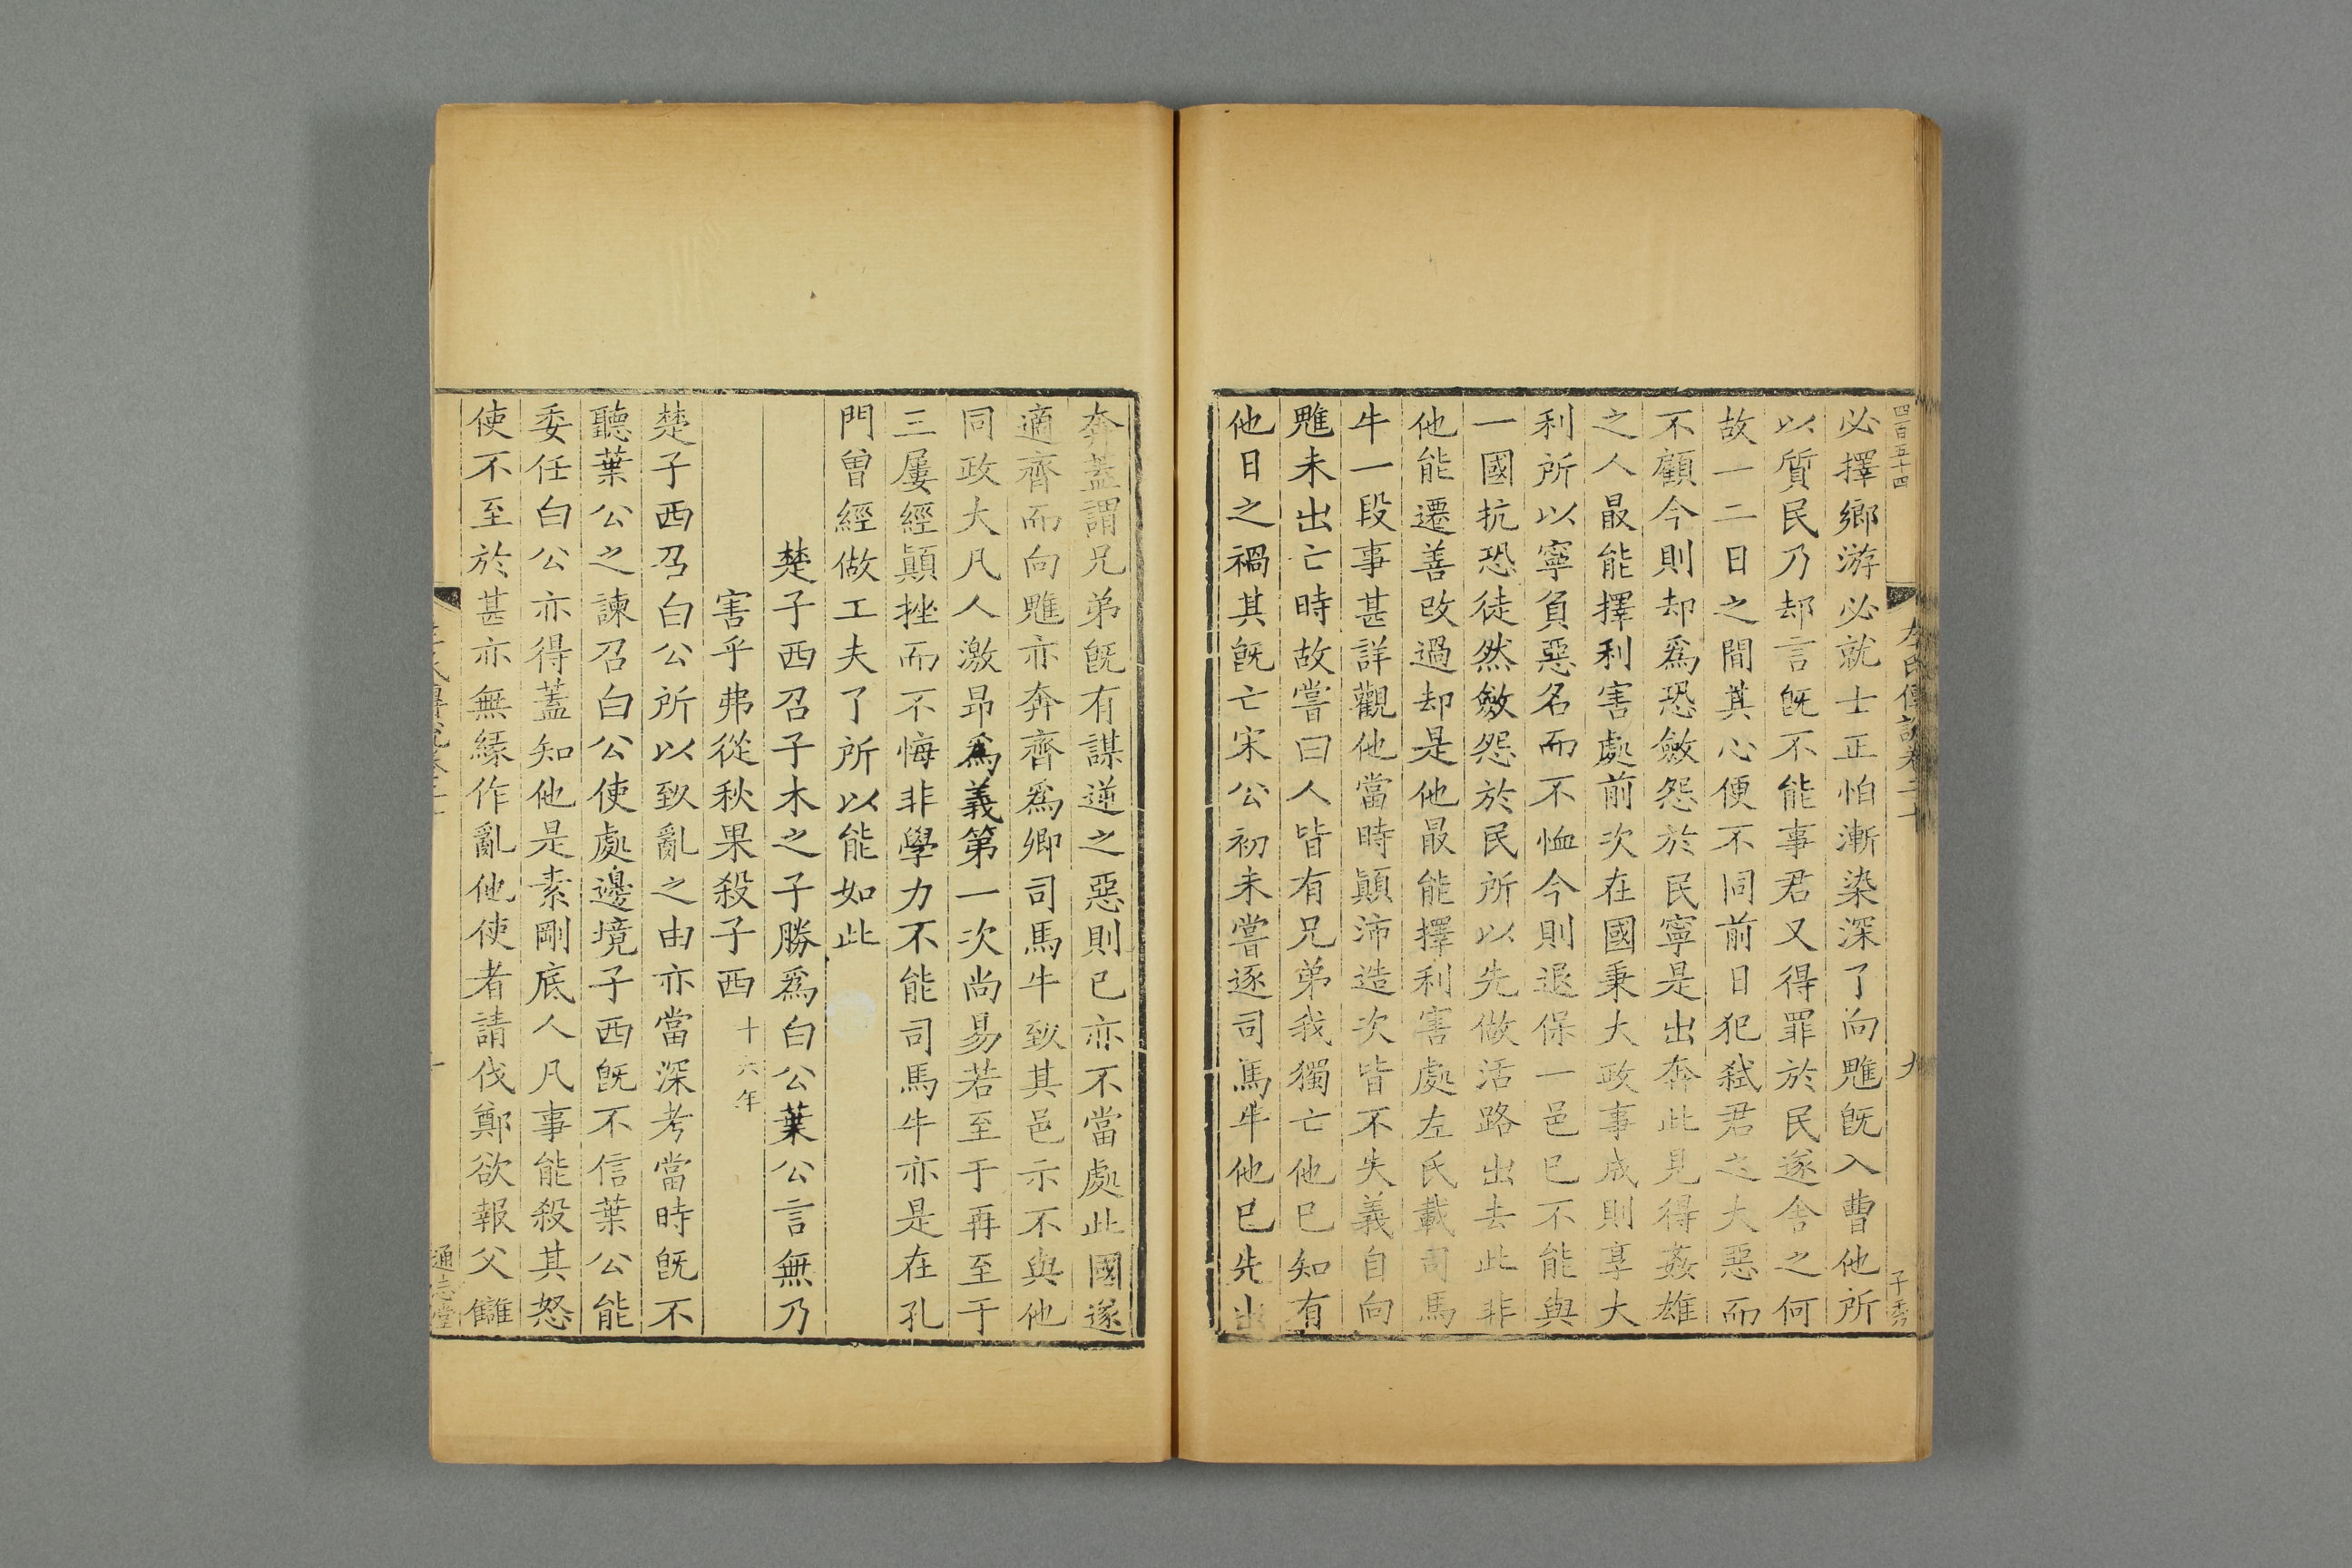 四百五十四
左氏傳說卷二十
九
子秀
必擇鄉游必就士正怕漸染深了向魋旣入曹他所
以質民乃却言旣不能事君又得罪於民遂舍之何
故一二日之間其心便不同前日犯弑君之大惡而
不顧今則却爲恐斂怨於民寧是出奔此見得姦雄
之人最能擇利害處前次在國秉大政事成則享大
利所以寧負惡名而不恤今則退保一邑已不能與
一國抗恐徒然斂怨於民所以先做活路出去此非
他能遷善改過却是他最能擇利害處左氏載司馬
牛一段事甚詳觀他當時顛沛造次皆不失義自向
魋未出亡時故嘗曰人皆有兄弟我獨亡他已知有
他日之禍其旣亡宋公初未嘗逐司馬牛他已先出
奔蓋謂兄弟旣有謀逆之惡則已亦不當處此國遂
適齊而向魋亦奔齊爲卿司馬牛致其邑示不與他
同政大凡人激昂爲義第一次尚易若至于再至于
三屢經顛挫而不悔非學力不能司馬牛亦是在孔
門曾經做工夫了所以能如此
楚子西召子木之子勝爲白公葉公言無乃
害乎弗從秋果殺子西 十六年
楚子西召白公所以致亂之由亦當深考當時旣不
聽葉公之諫召白公使處邊境子西旣不信葉公能
委任白公亦得蓋知他是素剛底人凡事能殺其怒
使不至於甚亦無緣作亂他使者請伐鄭欲報父讎
通志堂